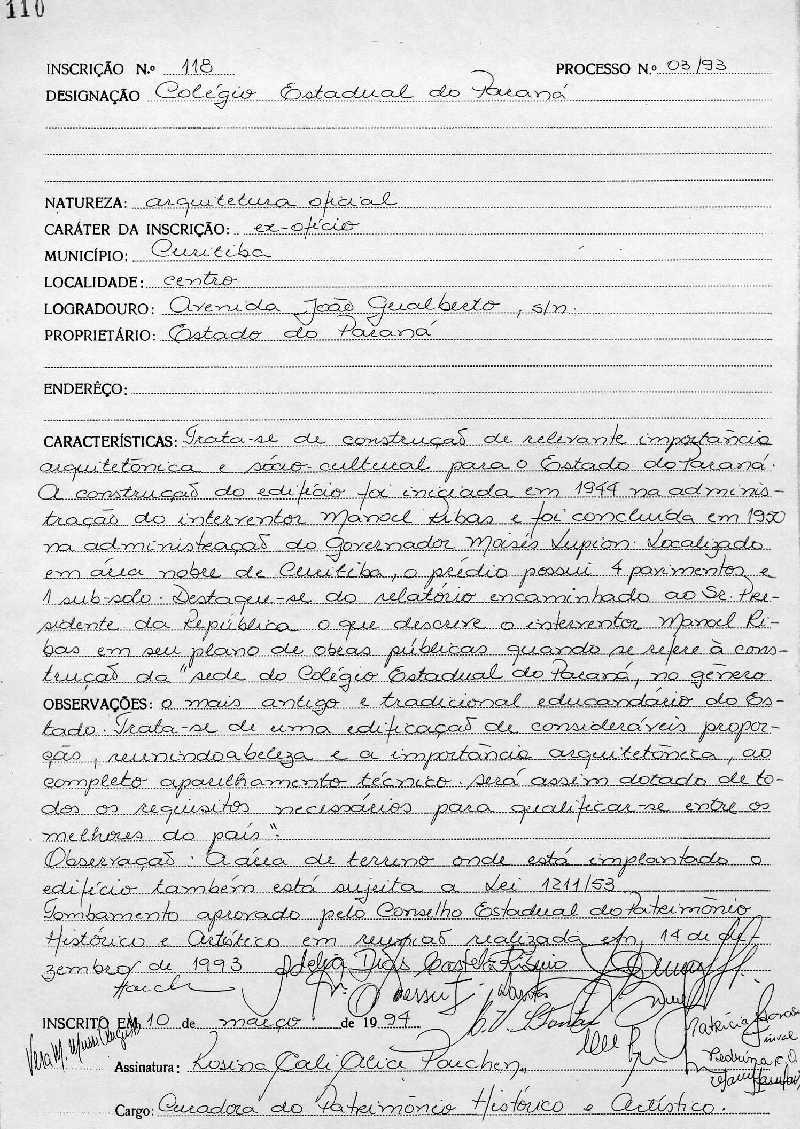 110
INSCRIÇÃO N.º 118 PROCESSO N.º 03/93
DESIGNAÇÃO Colégio Estadual do Paraná
NATUREZA: arquitetura oficial
CARÁTER DA INSCRIÇÃO: ex-ofício
MUNICÍPIO: Curitiba
LOCALIDADE: centro
LOGRADOURO: Avenida João Gualberto, s/n.
PROPRIETÁRIO: Estado do Paraná
ENDERÊÇO:
CARACTERÍSTICAS: Trata-se de construção de relevante importância
arquitetônica e sócio-cultural para o Estado do Paraná.
A construção do edifício foi iniciada em 1944 na adminis-
tração do interventor Manoel Ribas e foi concluída em 1950
na administração do Governador Moisés Lupion. Localizado
em área nobre de Curitiba, o prédio possui 4 pavimentos e
1 sub-solo. Destaque-se do relatório encaminhado ao Sr. Pre-
sidente da República o que descreve o interventor Manoel Ri-
bas em seu plano de obras públicas quando se refere à cons-
trução da "sede do Colégio Estadual do Paraná, no gênero
OBSERVAÇÕES: o mais antigo e tradicional educandário do Es-
tado. Trata-se de uma edificação de consideráveis propor-
ção, reunindo a beleza e a importância arquitetônica, ao
completo aparelhamento técnico. será assim dotado de to-
dos os requisitos necessários para qualificar-se entre os
melhores do país".
Observação: A área de terreno onde está implantado o
edifício também está sujeita a Lei 1211/53
Tombamento aprovado pelo Conselho Estadual do Patrimônio
Histórico e Artístico em reunião realizada em 14 de de-
zembro de 1993
INSCRITO EM 10 de março de 1994
Assinatura: Rosina Coeli Alice Parchen
Cargo: Curadora do Patrimônio Histórico e Artístico.